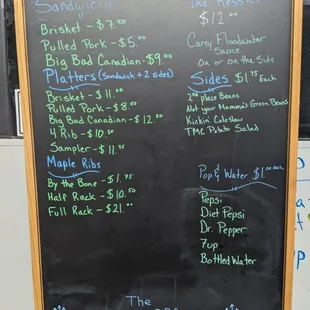 Sandwiches
Brisket - $7.50
Pulled Pork - $5.00
Big Bad Canadian - $9.00
Platters (Sandwich + 2 sides)
Brisket - $11.00
Pulled Pork - $8.50
Big Bad Canadian - $12.50
4 Rib - $10.50
Sampler - $11.75
Maple Ribs
By the Bone - $1.75
Half Rack - $10.50
Full Rack - $21.00
The Kessler
$12.00
Carey Floodwater
Sauce
On or on the Side
Sides $1.75 Each
2nd place Beans
Not your Momma's Green Beans
Kickin' Coleslaw
TMC Potato Salad
Pop & Water $1.00 each
Pepsi
Diet Pepsi
Dr. Pepper
7up
Bottled Water
The